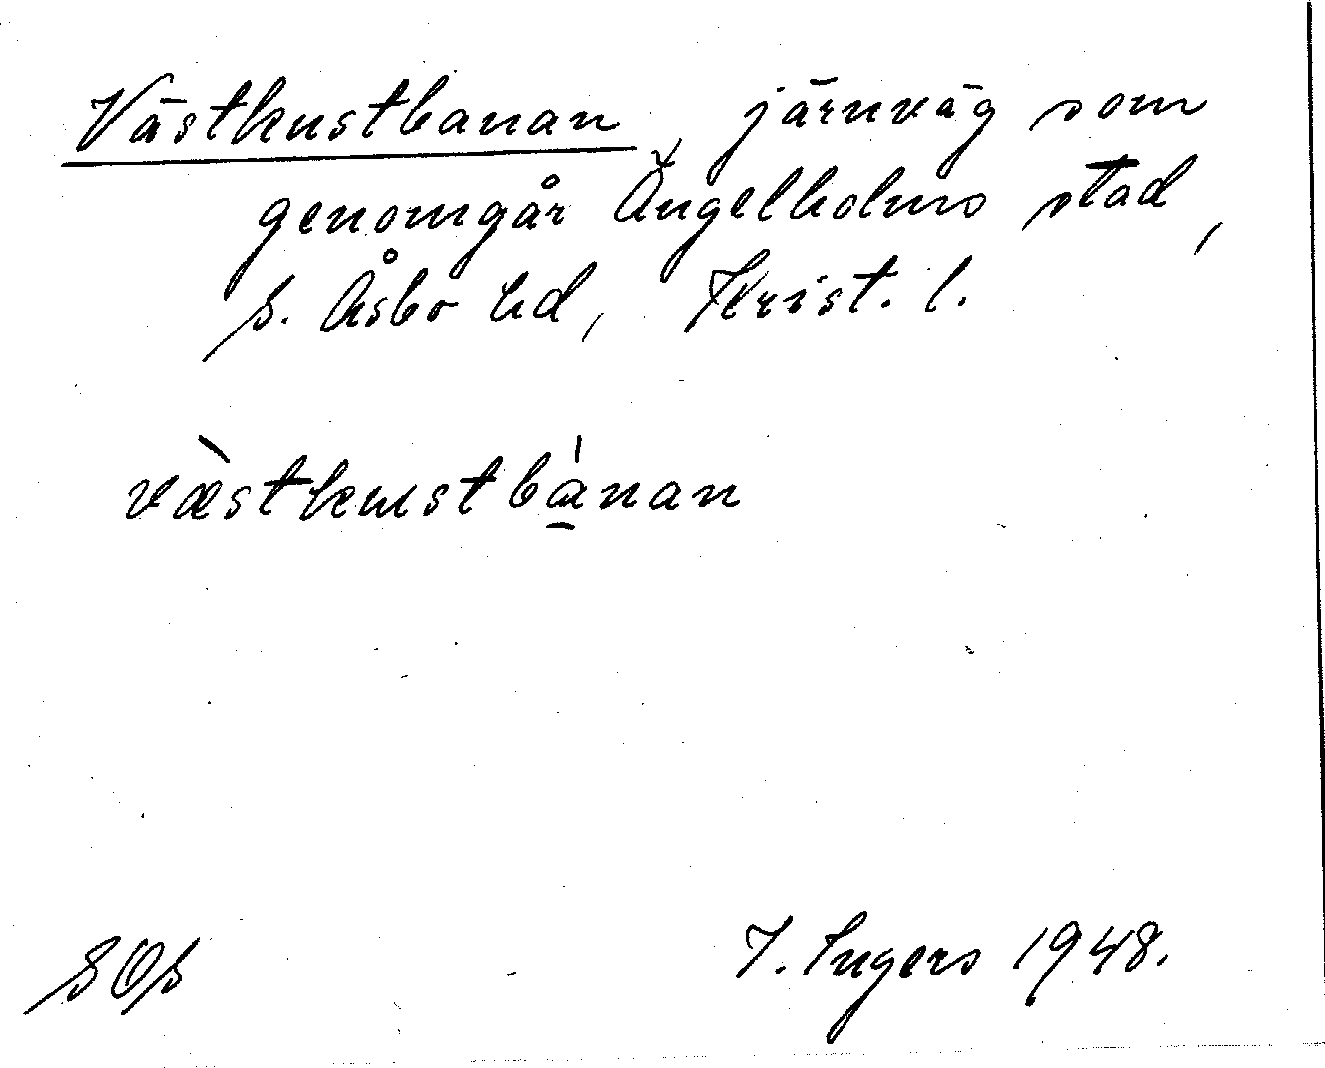 Västkustbanan, järnväg som
genomgår Ängelholms stad,
S. Åsbo hd, Krist. l.
væ̀stkustbánan
SOS
I. Ingers 1948.